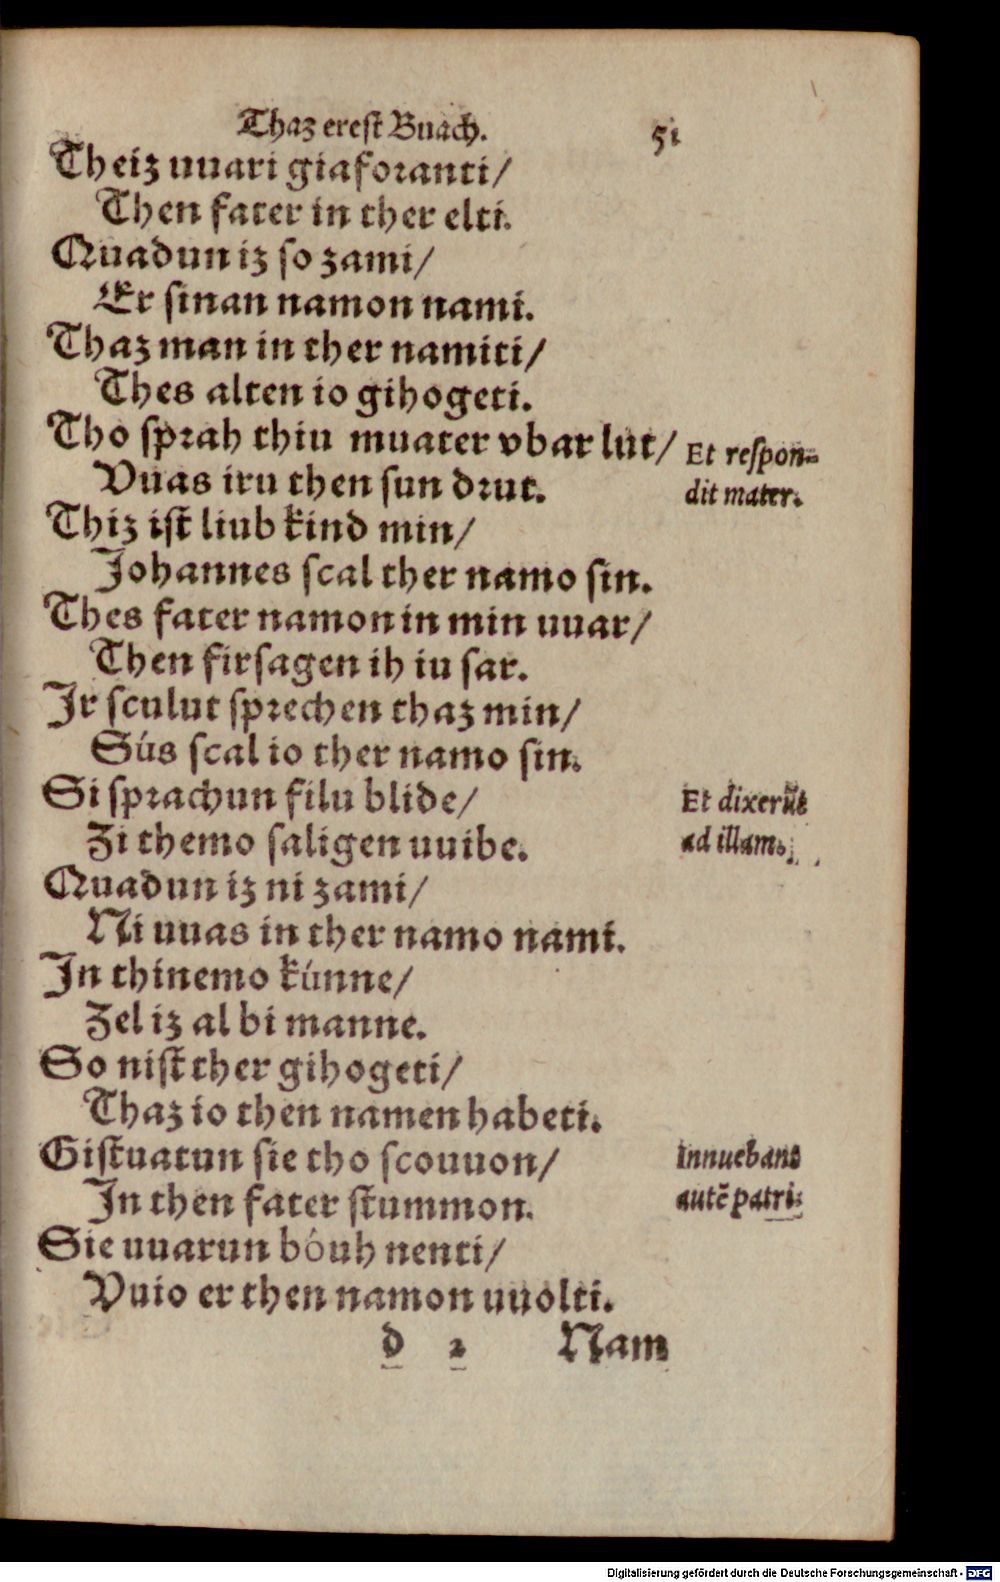 Thaz erest Buach. 51
Theiz uuari giaforanti/
Then fater in ther elti.
Quadun iz so zami/
Er sinan namon nami.
Thaz man in ther namiti/
Thes alten io gihogeti.
Tho sprah thiu muater vbar lut/
Et respon-
Vuas iru then sun drut.
dit mater.
Thiz ist liub kind min/
Johannes scal ther namo sin.
Thes fater namon in min uuar/
Then firsagen ih iu sar.
Jr sculut sprechen thaz min/
Sús scal io ther namo sin.
Si sprachun filu blide/
Et dixerũt
Zi themo saligen uuibe.
ad illam.
Quadun iz ni zami/
Ni uuas in ther namo nami.
Jn thinemo kúnne/
Zel iz al bi manne.
So nist ther gihogeti/
Thaz io then namen habeti.
Gistuatun sie tho scouuon/
Innuebant
Jn then fater stummon.
autẽ patri:
Sie uuarun bóuh nenti/
Vuio er then namon uuolti.
d 2 Nam
Digitalisierung gefördert durch die Deutsche Forschungsgemeinschaft - DFG